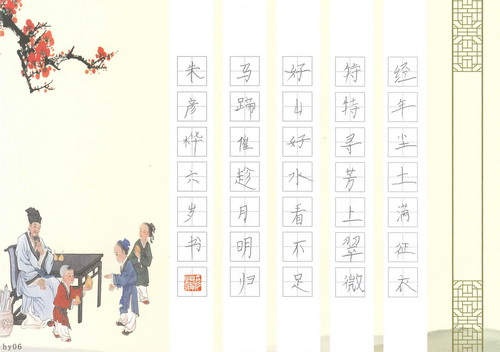 经年尘土满征衣
特特寻芳上翠微
好山好水看不足
马蹄催趁月明归
朱彦六岁书
hy06